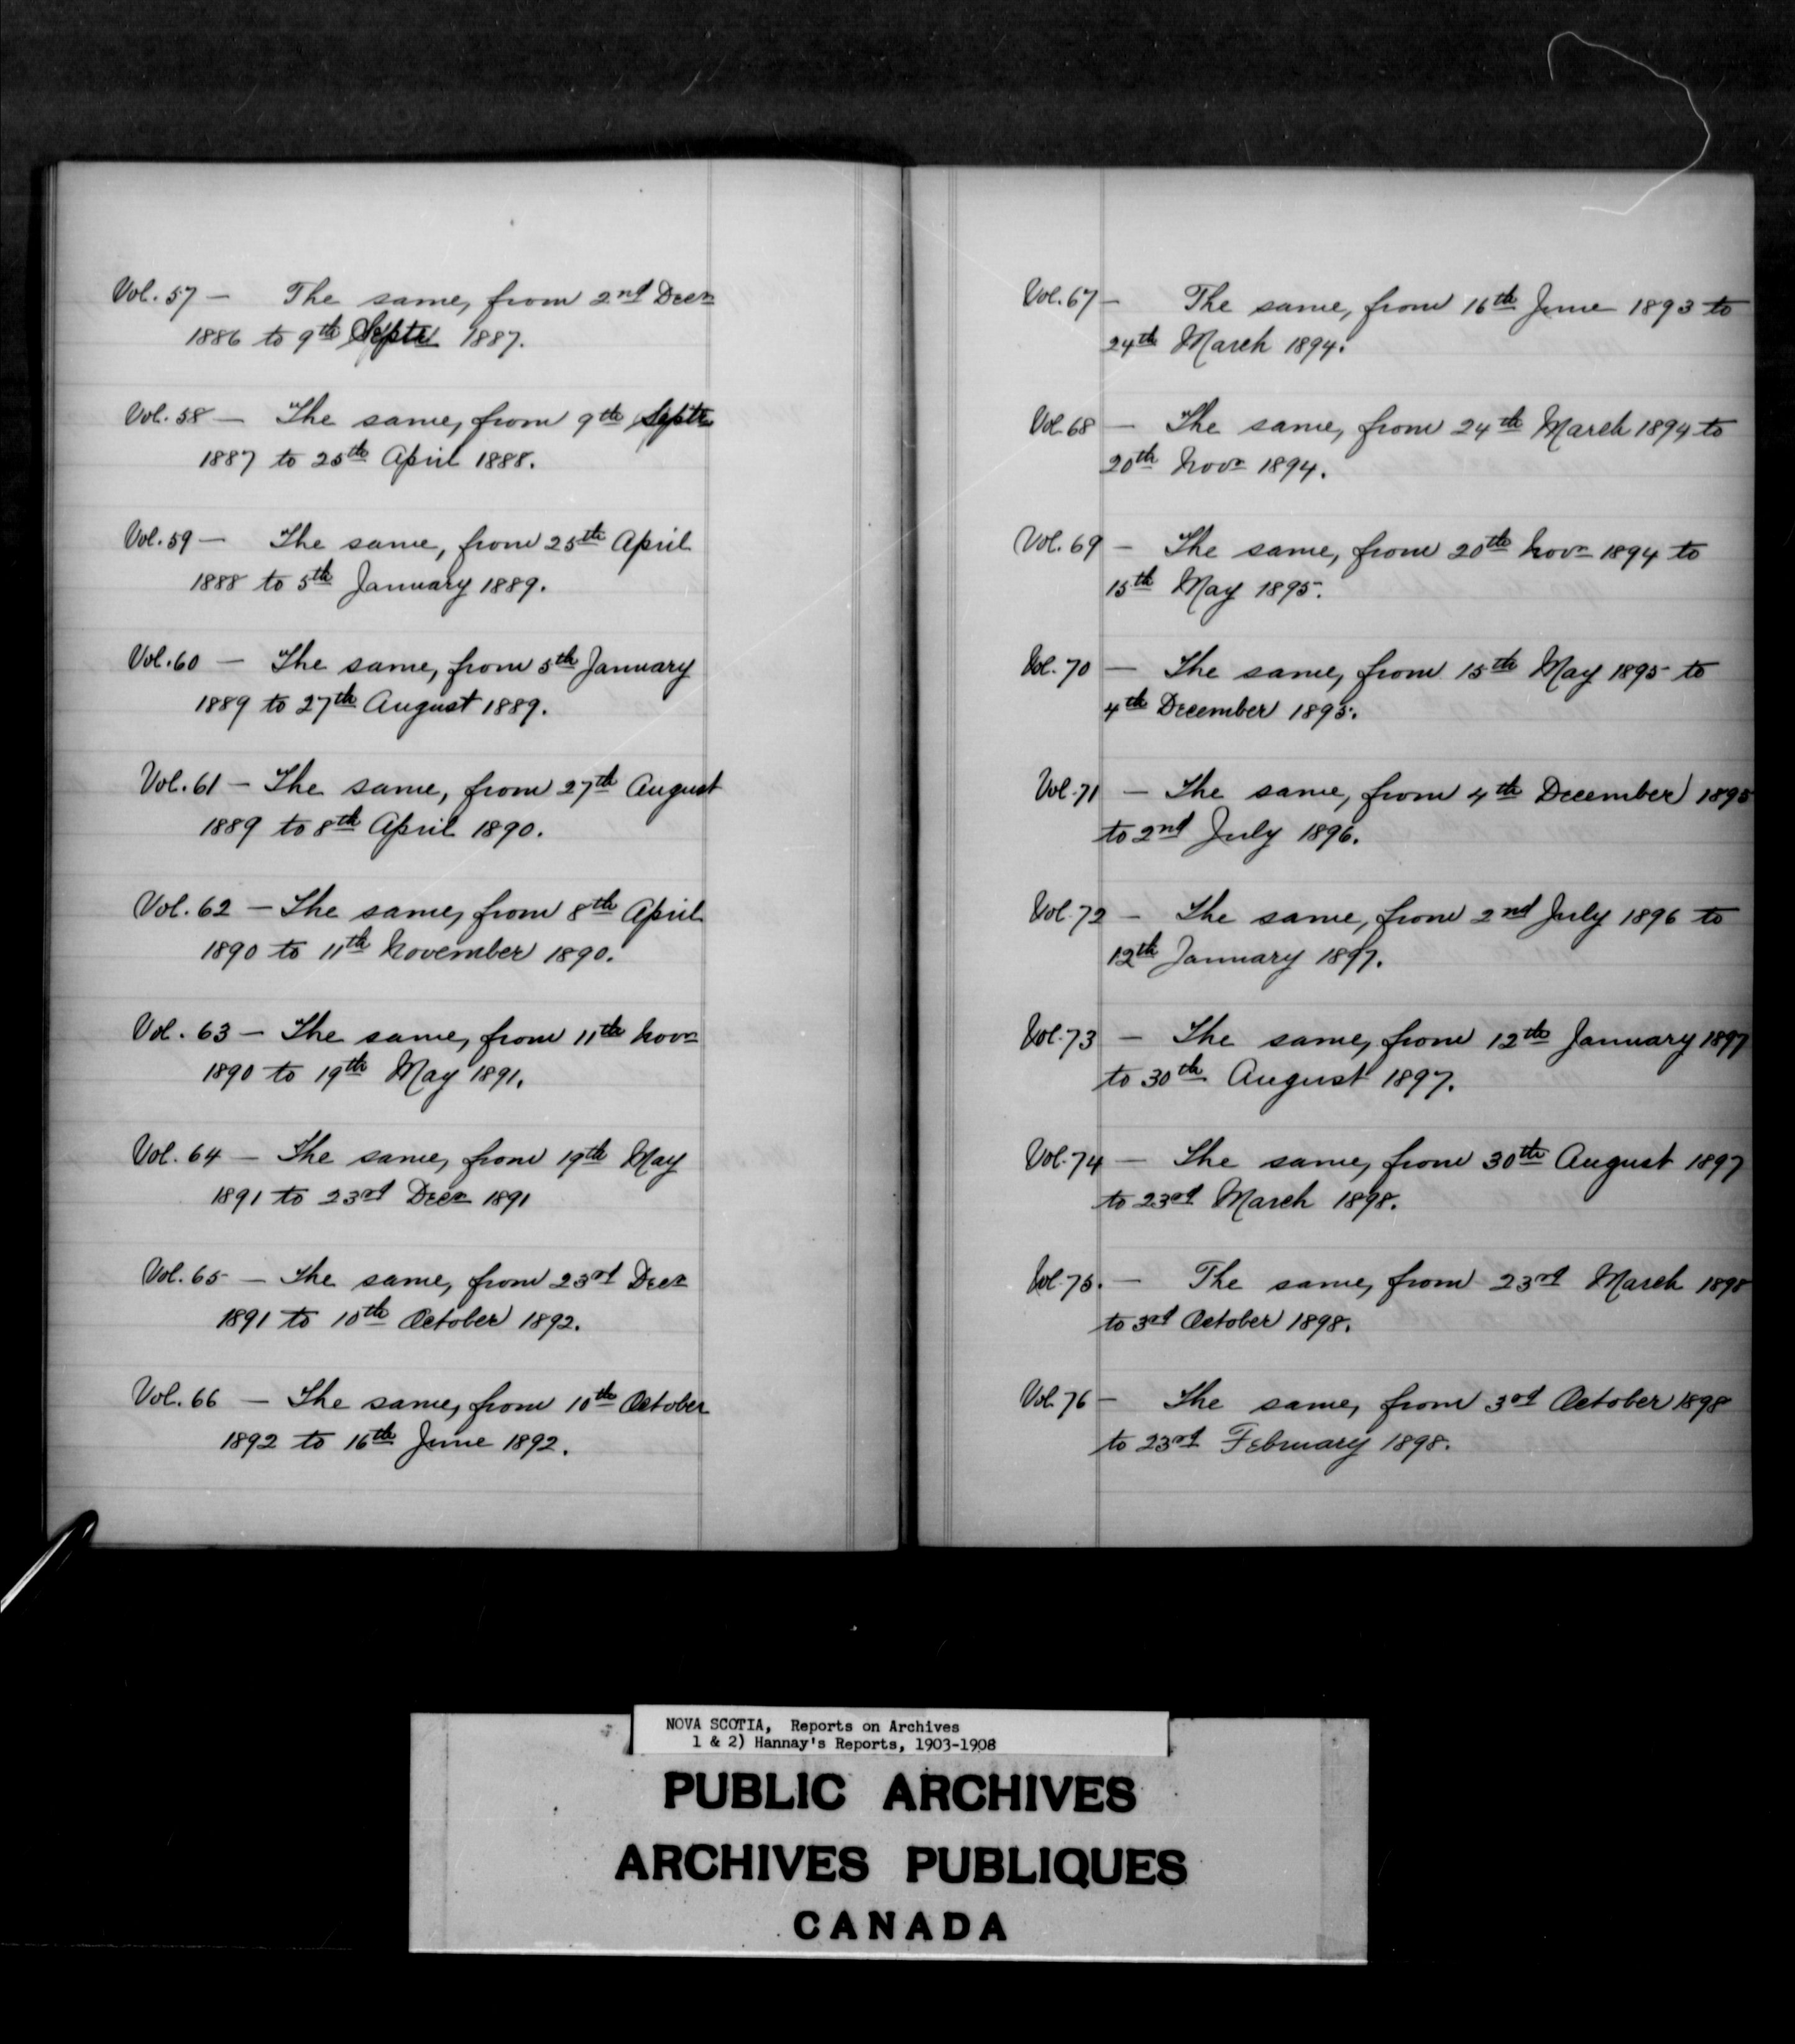 Vol. 57 — The same, from 2nd Decr
1886 to 9th Septr 1887.
Vol. 58 — The same, from 9th Septr
1887 to 25th April 1888.
Vol. 59 — The same, from 25th April
1888 to 5th January 1889.
Vol. 60 — The same, from 5th January
1889 to 27th August 1889.
Vol. 61 — The same, from 27th August
1889 to 8th April 1890.
Vol. 62 — The same, from 8th April
1890 to 11th November 1890.
Vol. 63 — The same, from 11th Novr
1890 to 19th May 1891.
Vol. 64 — The same, from 19th May
1891 to 23rd Decr 1891
Vol. 65 — The same, from 23rd Decr
1891 to 10th October 1892.
Vol. 66 — The same, from 10th October
1892 to 16th June 1892.
Vol. 67 — The same, from 16th June 1893 to
24th March 1894.
Vol. 68 — The same, from 24th March 1894 to
20th Novr 1894.
Vol. 69 — The same, from 20th Novr 1894 to
15th May 1895.
Vol. 70 — The same, from 15th May 1895 to
4th December 1895.
Vol. 71 — The same, from 4th December 1895
to 2nd July 1896.
Vol. 72 — The same, from 2nd July 1896 to
12th January 1897.
Vol. 73 — The same, from 12th January 1897
to 30th August 1897.
Vol. 74 — The same, from 30th August 1897
to 23rd March 1898.
Vol. 75. — The same, from 23rd March 1898
to 3rd October 1898.
Vol. 76 — The same, from 3rd October 1898
to 23rd February 1898.
NOVA SCOTIA, Reports on Archives
1 & 2) Hannay's Reports, 1903-1908
PUBLIC ARCHIVES
ARCHIVES PUBLIQUES
CANADA